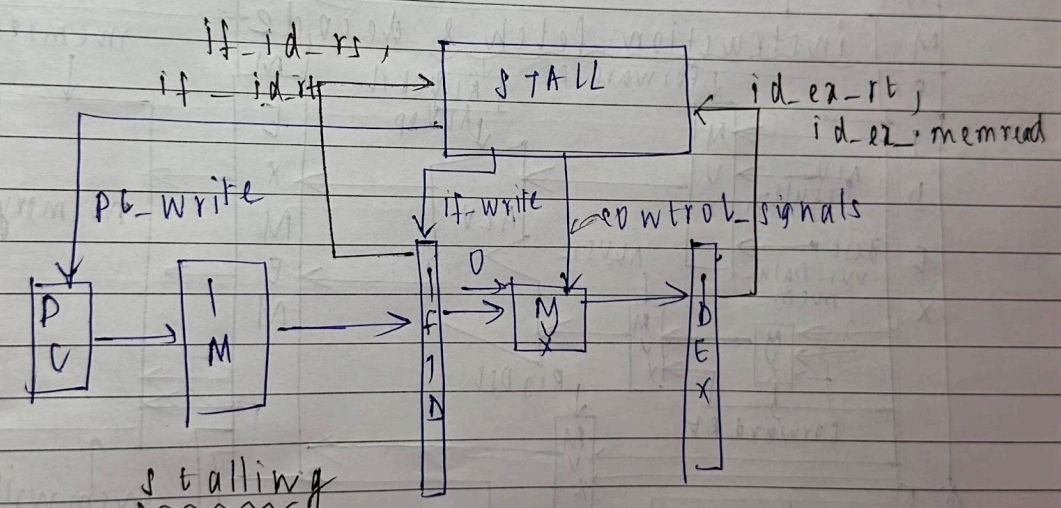 if_id_rs,
if_id_rt
STALL
id_ex_rt,
id_ex_memread
pc_write
if_write
control_signals
0
PC
IM
IFID
MUX
IDEX
stalling